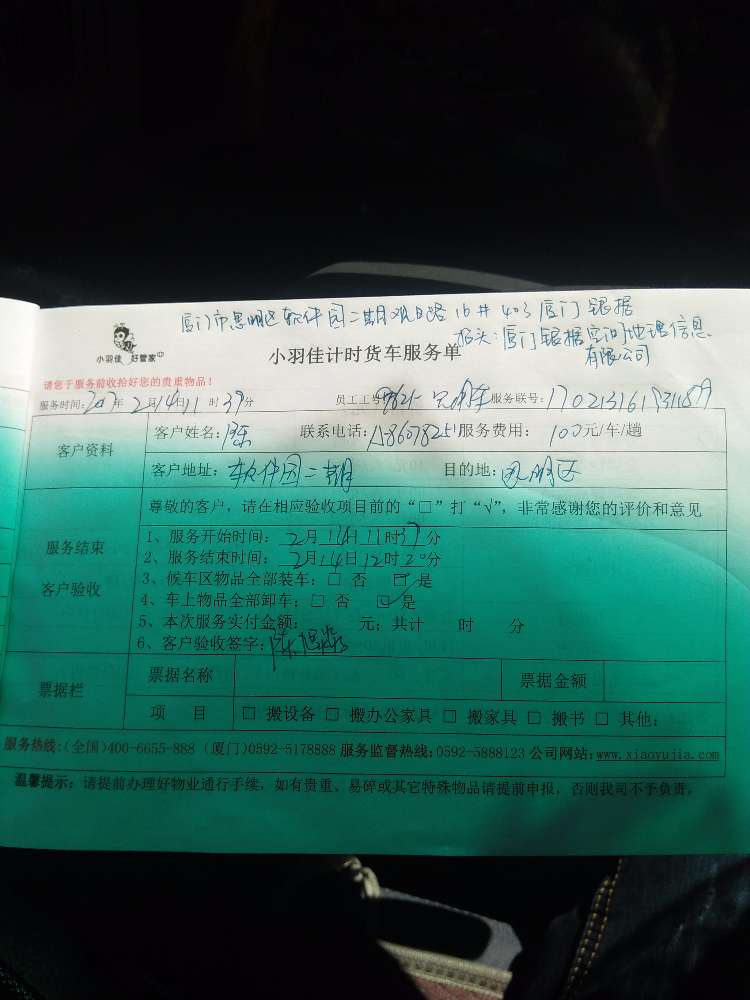 厦门市思明区软件园二期观日路16#403厦门银据
抬头:厦门银据空间地理信息
有限公司
小羽佳 好管家
小羽佳计时货车服务单
请您于服务前收拾好您的贵重物品!
服务时间:2017年2月14日11时39分 员工工号: 服务联号:
客户资料
客户姓名:陈 联系电话: 服务费用: 100元/车/趟
客户地址:软件园二期 目的地:思明区
尊敬的客户,请在相应验收项目前的“□”打“√”,非常感谢您的评价和意见
服务结束
客户验收
1、服务开始时间: 2月14日11时39分
2、服务结束时间: 2月14日12时20分
3、候车区物品全部装车:□ 否 □ 是
4、车上物品全部卸车:□ 否 □ 是
5、本次服务实付金额: 元;共计 时 分
6、客户验收签字:陈
票据栏
票据名称 票据金额
项 目 □ 搬设备 □ 搬办公家具 □ 搬家具 □ 搬书 □ 其他:
服务热线:(全国)400-6655-888 (厦门)0592-5178888 服务监督热线:0592-5888123 公司网站:www.xiaoyujia.com
温馨提示:请提前办理好物业通行手续,如有贵重、易碎或其它特殊物品请提前申报,否则我司不予负责。